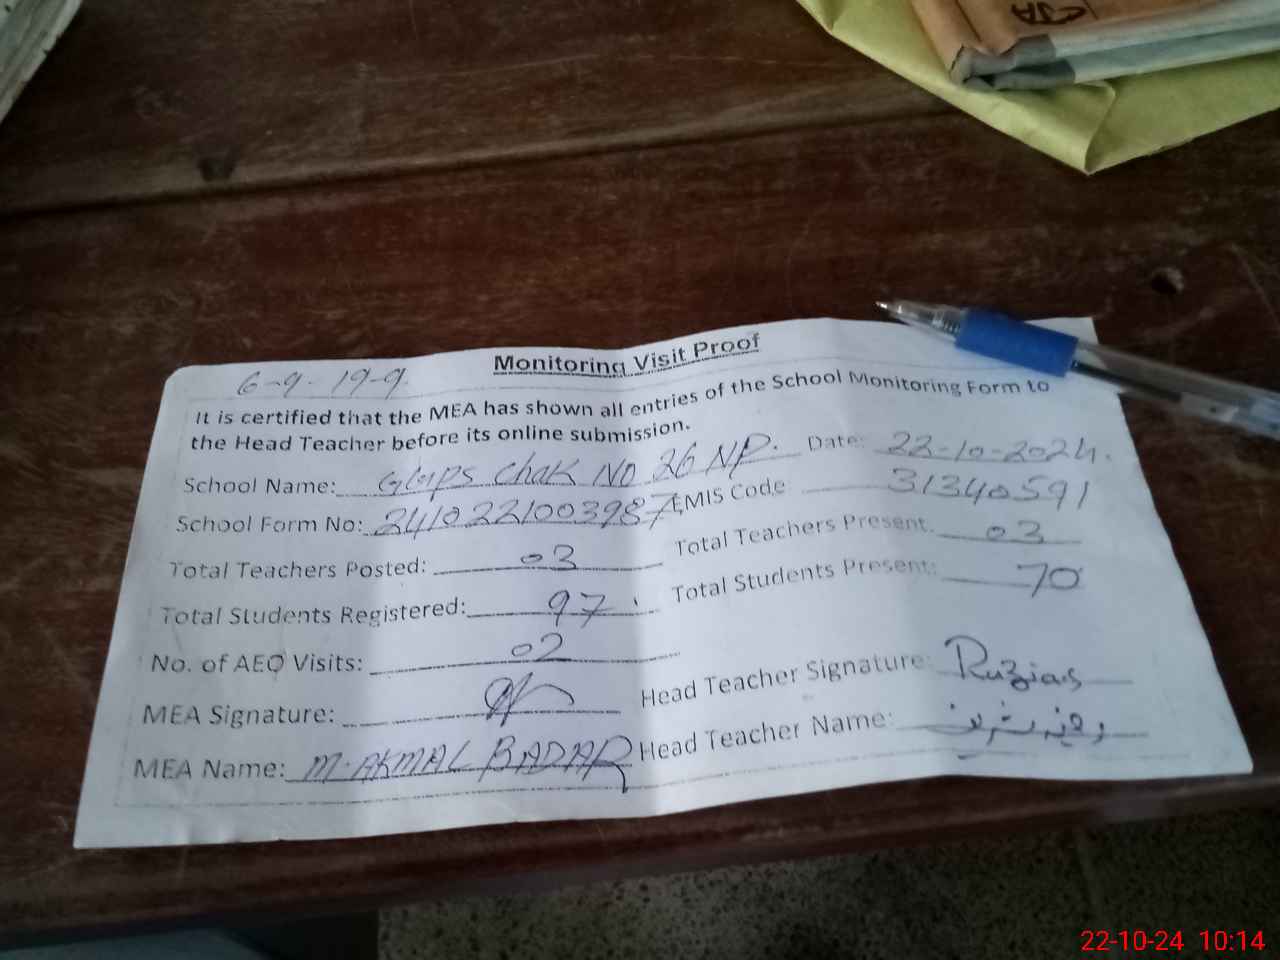 Monitoring Visit Proof
6-9-19-9
It is certified that the MEA has shown all entries of the School Monitoring Form to
the Head Teacher before its online submission.
School Name: GGPS Chak NO 26 NP. Date: 22-10-2024.
School Form No: 2410221003987 EMIS Code 31340591
Total Teachers Posted: 03 Total Teachers Present: 03
Total Students Registered: 97 Total Students Present: 70
No. of AEO Visits: 02
MEA Signature: Head Teacher Signature:
MEA Name: M. AKMAL BADAR Head Teacher Name:
22-10-24 10:14